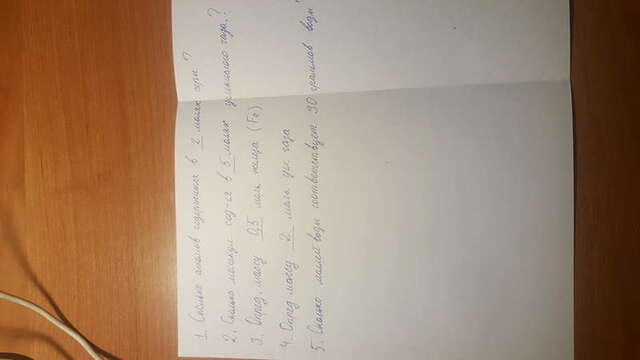 1. Сколько атомов содержится в 2 молях
2. Сколько молекул сод-ся в 5 молях углекислого газа?
3. Опред. массу 0,5 моль железа (Fe)
4. Опред. массу 2 моль уг. газа
5. Сколько молей воды соответствует 90 граммов воды?